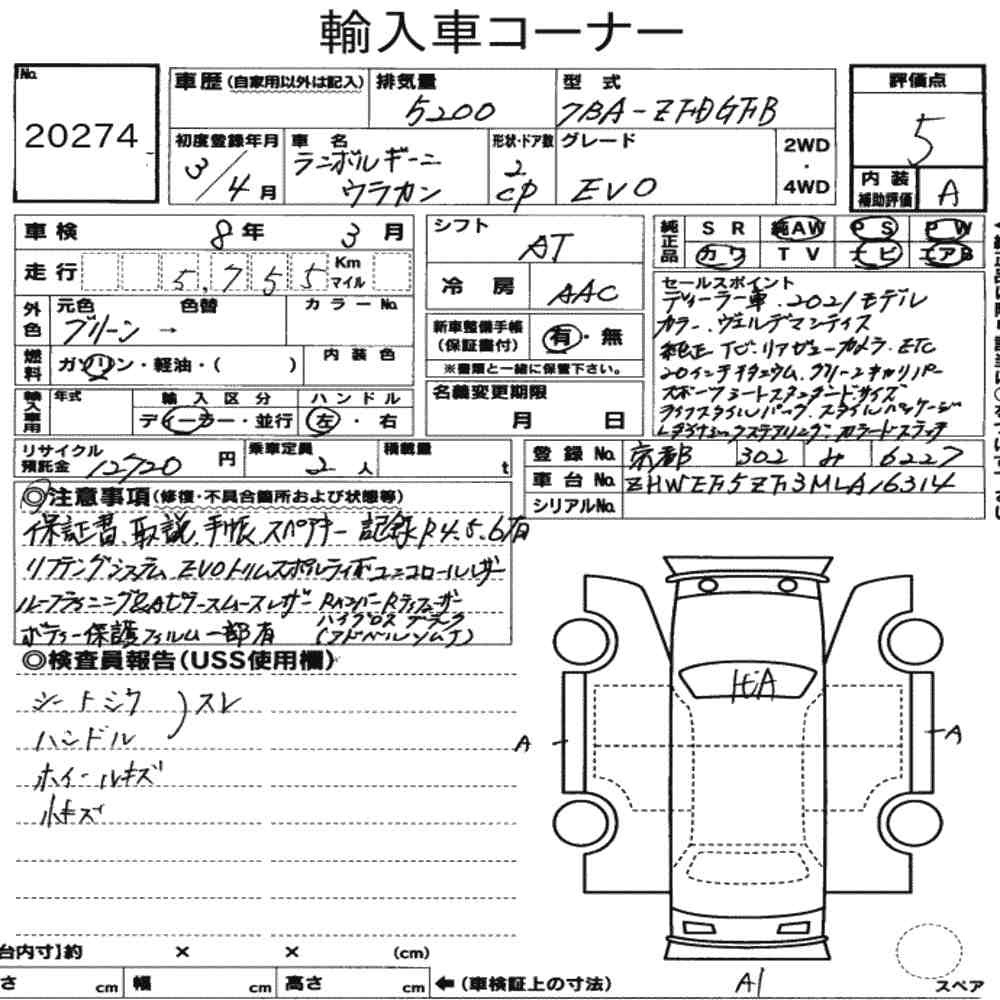 輸入車コーナー
No.
20274
車歴(自家用以外は記入)
排気量
5200
型 式
7BA-ZFDGFB
初度登録年月
3/4月
車 名
ランボルギーニ
ウラカン
形状・ドア数
2
CP
グレード
EVO
2WD
・
4WD
評価点
5
内 装
補助評価
A
車 検 8年 3月
走 行 5,755 Km マイル
外色
元色
色替
カラーNo.
グリーン →
燃料
ガソリン・軽油・( )
内 装 色
輸入車用
年式
輸 入 区 分
ハ ン ド ル
ディーラー・並行
左・右
シフト
AT
冷 房
AAC
新車整備手帳
(保証書付)
有・無
※書類と一緒に保管下さい。
名義変更期限
月 日
純正品
SR 純AW PS PW
カワ TV ナビ エアB
セールスポイント
ディーラー車.2021モデル
カラー.ヴェルデマンティス
純正TV.リアヴューカメラ.ETC
20インチ チタニウム.グリーンキャリパー
スポーツシートスタンダードサイズ
ライフスタイルパック.スタイルパッケージ
リサイクル
預託金 12720 円
乗車定員
2人
積載量
t
登 録 No. 京都 302 み 6227
車 台 No. ZHWEF5ZF3MLA16314
シリアルNo.
◎注意事項(修復・不具合箇所および状態等)
保証書、取説、手帳、スペアキー 記録R4.5.6有
リフティングシステム EVOトリムスポルティボユニコロールレザー
ルーフライニング&Aピラースムースレザー RバンパーRディフューザー
ハイグロスブラック
ボディー保護フィルム一部有
◎検査員報告(USS使用欄)
シートシワ
スレ
ハンドル
ホイールキズ
小キズ
A
A
A1
台内寸】約 × × (cm)
さ cm 幅 cm 高さ cm ←(車検証上の寸法)
スペア